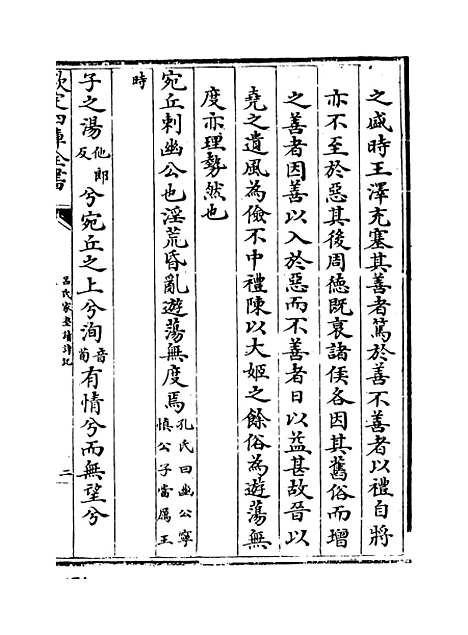 之盛時王澤充塞其善者篤於善不善者以禮自將
亦不至於惡其後周德既衰諸侯各因其舊俗而增
之善者因善以入於惡而不善者日以益甚故晉以
堯之遺風為儉不中禮陳以大姬之餘俗為遊蕩無
度亦理勢然也
宛丘刺幽公也淫荒昏亂遊蕩無度焉孔氏曰幽公寧慎公子當厲王
時
子之湯他郎反兮宛丘之上兮洵音荀有情兮而無望兮
欽定四庫全書
呂氏家塾讀詩記
二